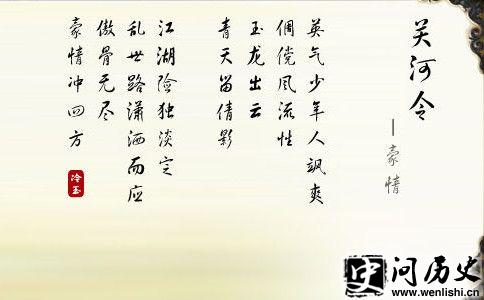 关河令
—豪情
英气少年人飒爽
倜傥风流性
玉龙出云
青天留倩影
江湖险独淡定
乱世路潇洒而应
傲骨无尽
豪情冲四方
冷玉
史问历史
www.wenlishi.cn